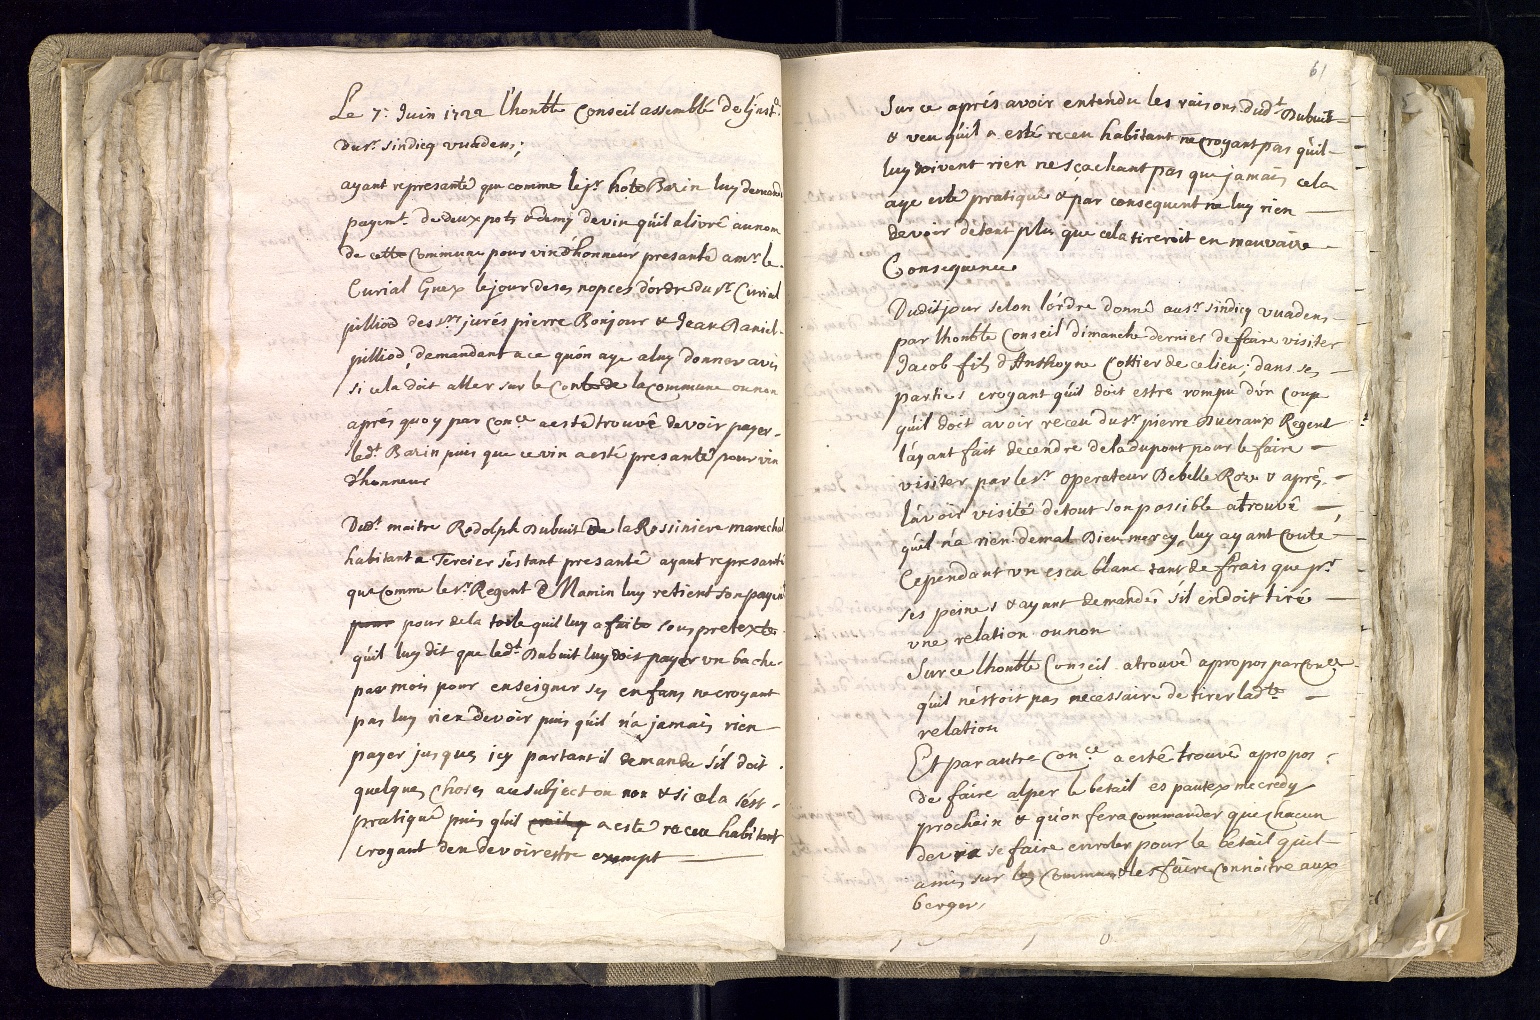 Le 7e Juin 1722 l'honble Conseil assemblé de l'jnste
du sr. sindicq vuadens;
ayant represanté que comme le jr hote Barin luy demande
payemt. de deux pots & demy de vin qu'il a livré au nom
de cette Commune pour vin d'honneur presanté a mr. le
Curial Guex le jour de ses nopces d'ordre du sr. Curial
pilliod des srs jurés pierre Bonjour & Jean Daniel
pilliod, demandant a ce qu'on aye a luy donner avis
si cela doit aller sur le Conte de la Commune ou non
aprés quoy par Conce a esté trouvé devoir payer
led.t Barin puis que ce vin a esté presanté pour vin
d'honneur
Dud.t maitre Rodolph Dubuit de la Rossiniere marechal
habitant a Tercier s'estant presanté ayant represanté
que comme le sr. Regent D Mamin luy retient son payemt
pour pour de la toile quil luy a faite sous pretexte
qu'il luy dit que led.t Dubuit luy doit payer un bache
par mois pour enseigner ses enfans ne croyant
pas luy rien devoir puis qu'il n'a jamais rien
payer jusques icy partant il demande s'il doit
quelques choses au subject ou non & si cela s'est
pratiqué puis q'uil a esté receu habitant
croyant d'en devoir estre exempt
61
Sur ce aprés avoir entendu les raisons dud.t Dubuit
& veu qu'il a esté receu habitant ne croyant pas qu'il
luy doivent rien ne sçachant pas que jamais cela
aye esté pratiqué & par consequent ne luy rien
devoir d'etant plus que cela tireroit en mauvaise
Consequence
Dudit jour selon l'ordre donné au sr. sindicq vuadens
par lhonble Conseil dimanche dernier de faire visiter
Jacob fils d'Anthoyne Cottier de ce lieu; dans ses
parties croyant qu'il doit estre rompu d'un Coup
qu'il doit avoir receu du sr pierre Ducraux Regent
l'ayant fait decendre de la dupont pour le faire
visiter par le sr. operateur Debelle Roze & aprés
l'avoir visité de tout son possible a trouvé
qu'il n'a rien de mal Dieu mercy, luy ayant Couté
Cependant vn escu blanc tant de frais que pr
ses peines & ayant demandés s'il en doit tiré
vne relation ou non
Sur ce lhonble Conseil a trouvé a propos par Conce
qu'il n'estoit pas necessaire de tirer ladte
relation
Et par autre Con.ce a esté trouvé a propos
de faire alper le betail es pautex mecredy
prochain & qu'on fera commander que chacun
devra se faire enroler pour le betail qu'il
a mis sur les Commun & les faire Connoitre aux
bergers